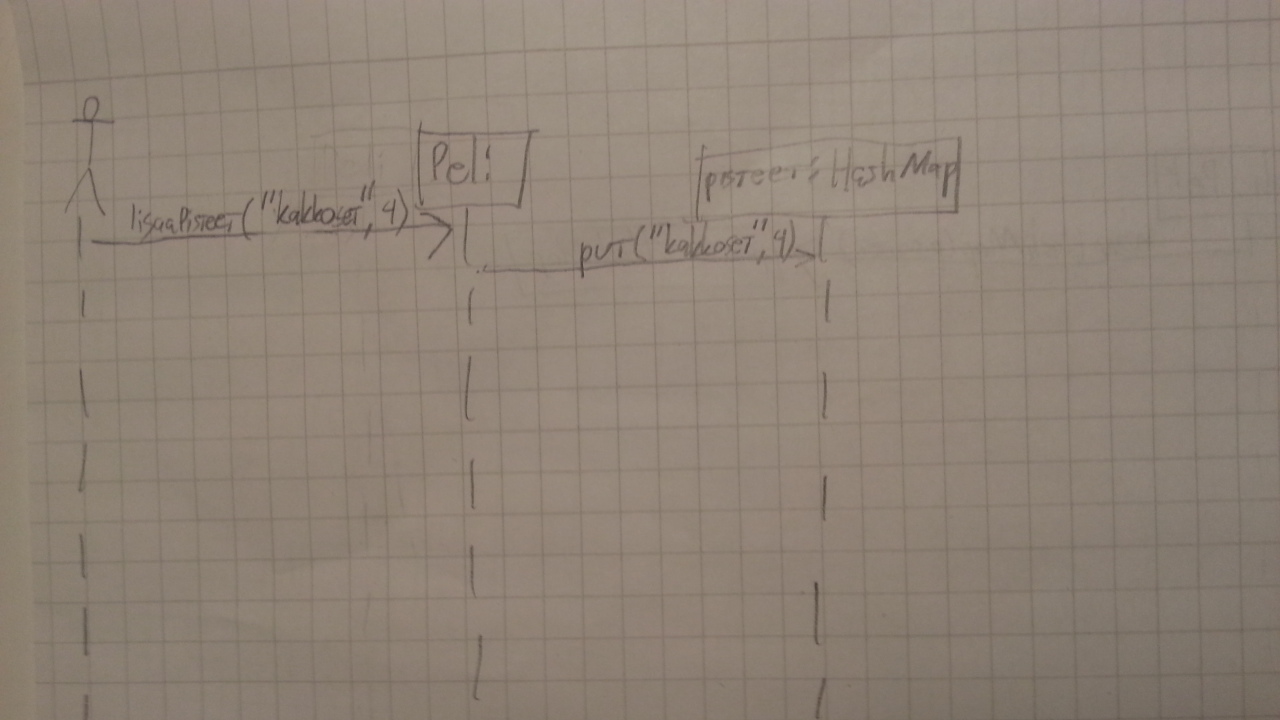 Peli
pisteet: HashMap
lisaaPisteet("kakkoset", 4)
put("kakkoset", 4)